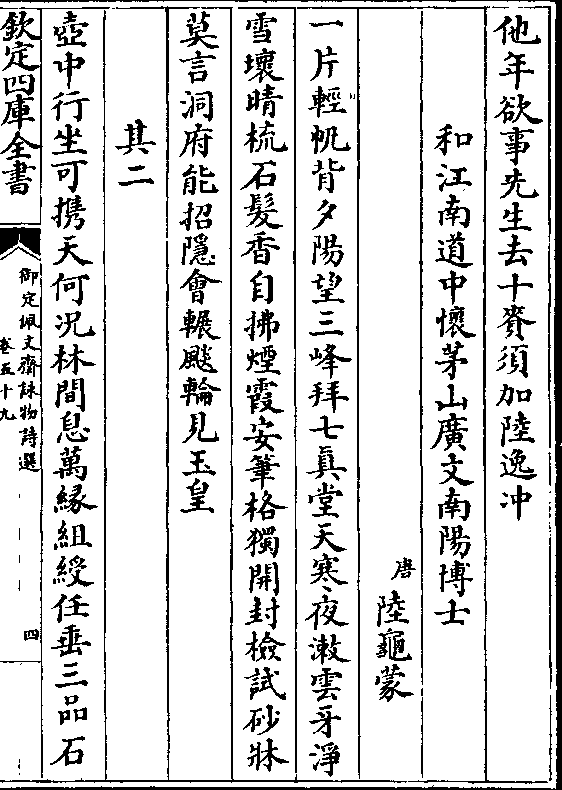 他年欲事先生去十賚須加陸逸冲
和江南道中懷茅山廣文南陽博士
唐 陸龜蒙
一片輕帆背夕陽望三峰拜七真堂天寒夜漱雲牙淨
雪壞晴梳石髮香自拂煙霞安筆格獨開封檢試砂牀
莫言洞府能招隱會輾飈輪見玉皇
其二
壺中行坐可攜天何況林間息萬緣組綬任垂三品石
欽定四庫全書
御定佩文齋詠物詩選
卷五十九
四